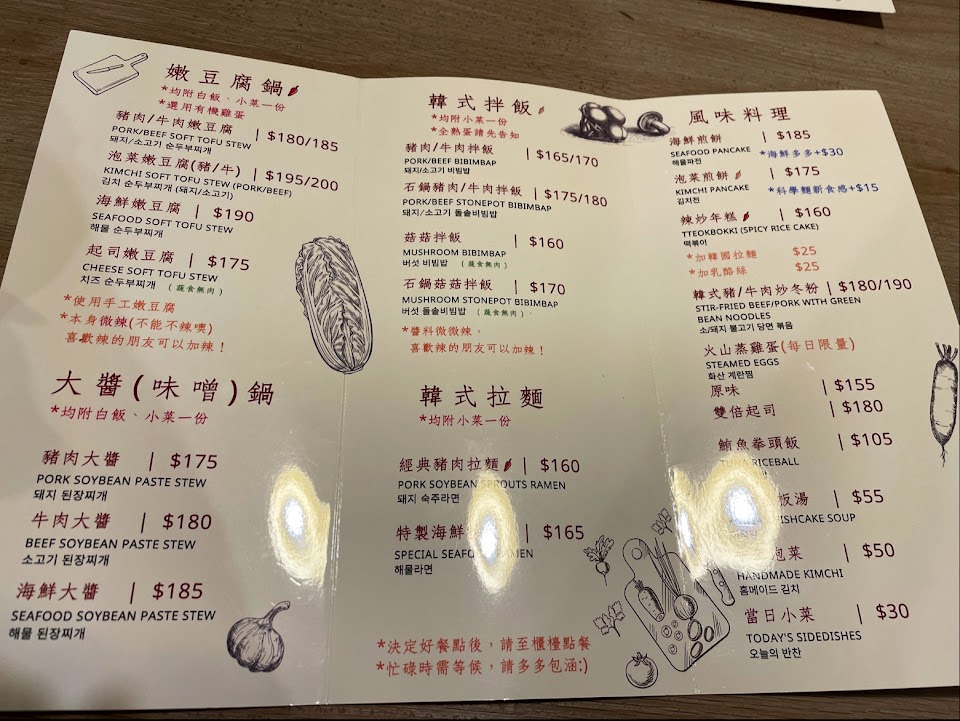 嫩豆腐鍋
*均附白飯、小菜一份
*選用有機雞蛋
豬肉/牛肉嫩豆腐 | $180/185
PORK/BEEF SOFT TOFU STEW
돼지/소고기 순두부찌개
泡菜嫩豆腐(豬/牛) | $195/200
KIMCHI SOFT TOFU STEW (PORK/BEEF)
김치 순두부찌개 (돼지/소고기)
海鮮嫩豆腐 | $190
SEAFOOD SOFT TOFU STEW
해물 순두부찌개
起司嫩豆腐 | $175
CHEESE SOFT TOFU STEW
치즈 순두부찌개 (蔬食無肉)
*使用手工嫩豆腐
*本身微辣(不能不辣噢)
喜歡辣的朋友可以加辣!
大醬(味噌)鍋
*均附白飯、小菜一份
豬肉大醬 | $175
PORK SOYBEAN PASTE STEW
돼지 된장찌개
牛肉大醬 | $180
BEEF SOYBEAN PASTE STEW
소고기 된장찌개
海鮮大醬 | $185
SEAFOOD SOYBEAN PASTE STEW
해물 된장찌개
韓式拌飯
*均附小菜一份
*全熟蛋請先告知
豬肉/牛肉拌飯 | $165/170
PORK/BEEF BIBIMBAP
돼지/소고기 비빔밥
石鍋豬肉/牛肉拌飯 | $175/180
PORK/BEEF STONEPOT BIBIMBAP
돼지/소고기 돌솥비빔밥
菇菇拌飯 | $160
MUSHROOM BIBIMBAP
버섯 비빔밥 (蔬食無肉)
石鍋菇菇拌飯 | $170
MUSHROOM STONEPOT BIBIMBAP
버섯 돌솥비빔밥 (蔬食無肉)
*醬料微微辣,
喜歡辣的朋友可以加辣!
韓式拉麵
*均附小菜一份
經典豬肉拉麵 | $160
PORK SOYBEAN SPROUTS RAMEN
돼지 숙주라면
特製海鮮 | $165
SPECIAL SEAFOOD RAMEN
해물라면
*決定好餐點後,請至櫃檯點餐
*忙碌時需等候,請多多包涵:)
風味料理
海鮮煎餅 | $185
SEAFOOD PANCAKE *海鮮多多+$30
해물파전
泡菜煎餅 | $175
KIMCHI PANCAKE *科學麵新食感+$15
김치전
辣炒年糕 | $160
TTEOKBOKKI (SPICY RICE CAKE)
떡볶이
*加韓國拉麵 $25
*加乳酪絲 $25
韓式豬/牛肉炒冬粉 | $180/190
STIR-FRIED BEEF/PORK WITH GREEN
BEAN NOODLES
소/돼지 불고기 당면 볶음
火山蒸雞蛋(每日限量)
STEAMED EGGS
화산 계란찜
原味 | $155
雙倍起司 | $180
鮪魚拳頭飯 | $105
TUNA RICEBALL
板湯 | $55
FISHCAKE SOUP
泡菜 | $50
HANDMADE KIMCHI
홈메이드 김치
當日小菜 | $30
TODAY'S SIDEDISHES
오늘의 반찬